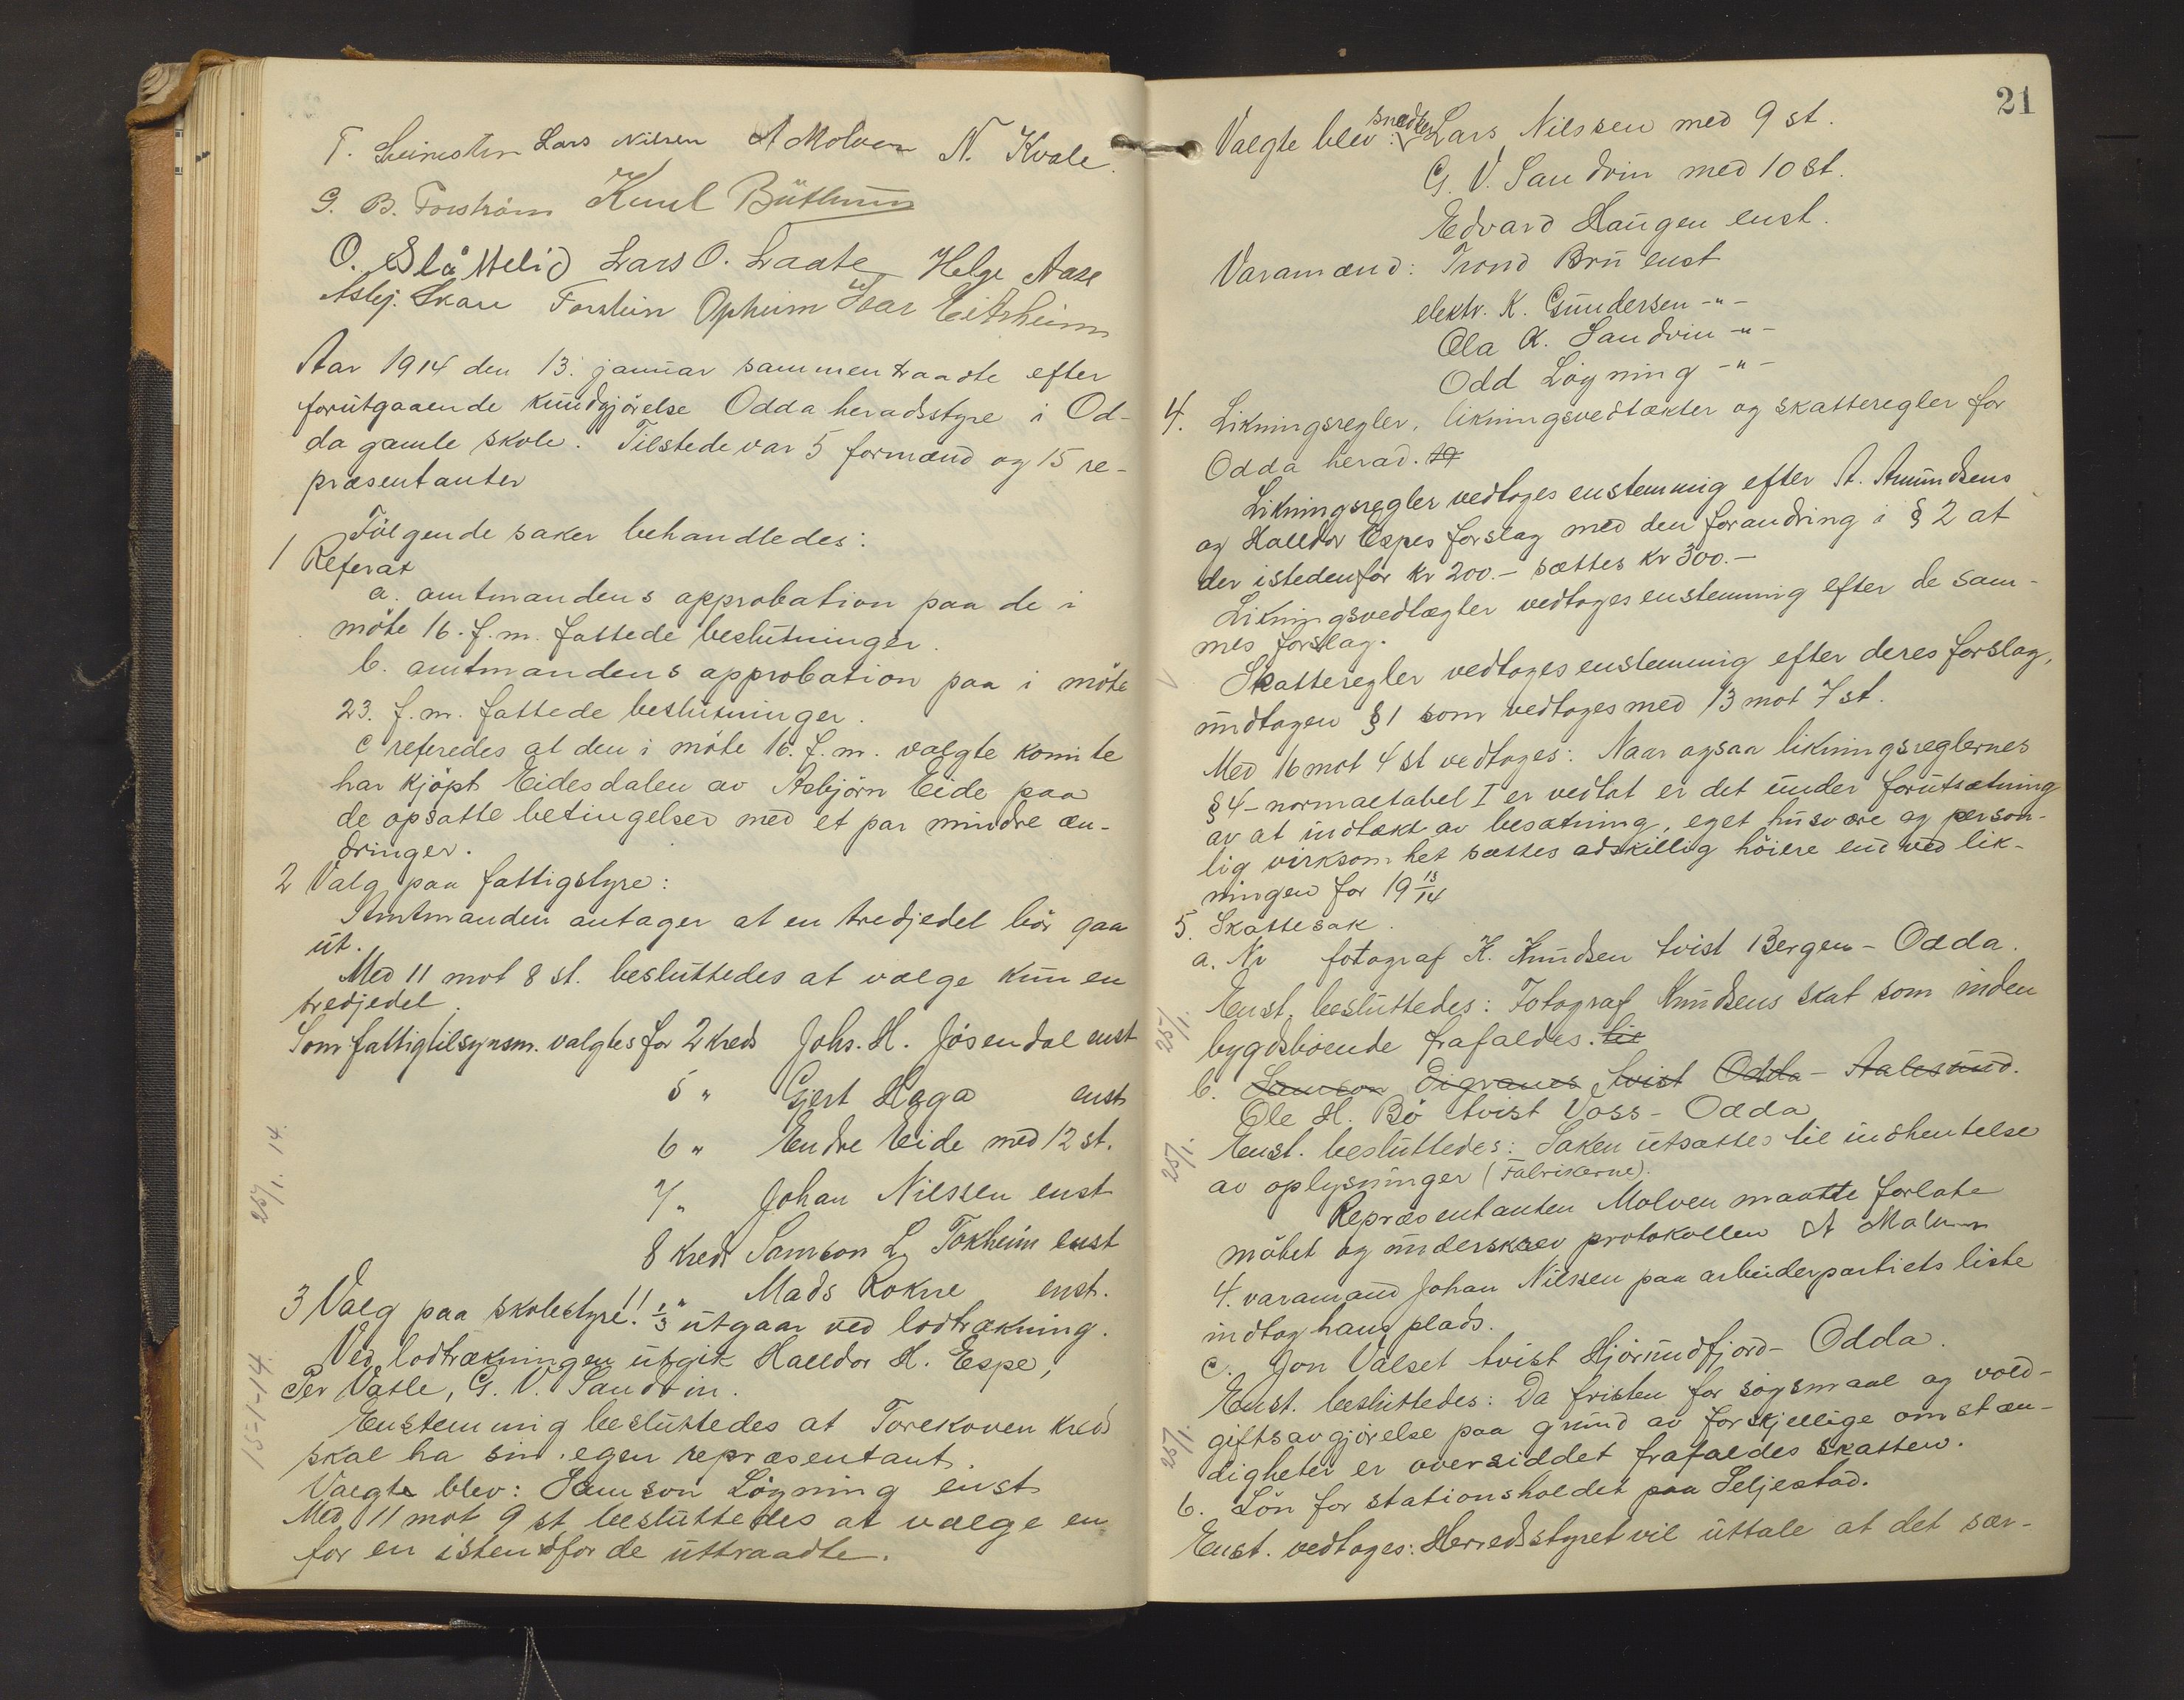 T. Lars Nilsen A Molven N. Kvale.
G. B. Forström Knut
O. Slåttelid Lars O. Helge Aase
Asbj. Skare Torstein Opheim Ivar Eitrheim
Aar 1914 den 13. januar sammentraadte efter
forutgaaende kundgjörelse Odda heradsstyre i Od-
da gamle skole. Tilstede var 5 formænd og 15 re-
præsentanter
Fölgende saker behandledes:
1 Referat
a. amtmandens approbation paa de i
möte 16. f. m. fattede beslutninger.
b. amtmandens approbation paa i möte
23. f. m. fattede beslutninger.
c referedes at den i möte 16. f. m. valgte komite
har kjöpt Eidesdalen av Asbjörn Eide paa
de opsatte betingelser med et par mindre æn-
dringer.
2 Valg paa fattigstyre:
Amtmanden antager at en tredjedel bör gaa
ut.
Med 11 mot 8 st. besluttedes at vælge kun en
tredjedel.
Som fattigtilsynsm. valgtes for 2 kreds Johs. H. Jösendal enst
5 " Gjert Haga enst
6 " Endre Eide med 12 st.
7 " Johan Nilssen enst
25/1. 14.
8 kreds Samson L. Tokheim enst
11 " Mads Rokne enst.
3 Valg paa skolestyre: 1/3 utgaar ved lodtrækning.
Ved lodtrækningen utgik Halldor H. Espe,
Per Vasle, G. V. Sandvin.
15-1-14.
Enstemmig besluttedes at Torekoven kreds
skal ha sin egen repræsentant.
Valgte blev: Samson Lögning enst
Med 11 mot 9 st besluttedes at vælge en
for en istendfor de uttraadte.
21
Valgte blev: snedker Lars Nilssen med 9 st.
G. V. Sandvin med 10 st.
Edvard Haugen enst.
Varamænd: Trond Bru enst
elektr. K. Gundersen -"-
Ola K. Sandvin -"-
Odd Lögning -"-
4. Likningsregler, likningsvedtækter og skatteregler for
Odda herad.
Likningsregler vedtages enstemmig efter A. Amundsens
og Halldor Espes forslag med den forandring i § 2 at
der istedenfor kr 200.- sættes kr 300.-
Likningsvedtægter vedtages enstemmig efter de sam-
mes forslag.
Skatteregler vedtages enstemmig efter deres forslag,
undtagen § 1 som vedtages med 13 mot 7 st.
Med 16 mot 4 st vedtages: Naar ogsaa likningsreglernes
§ 4 - normaltabel I er vedtat er det under forutsætning
av at indtækt av besætning, eget husvære og person-
lig virksomhet sættes adskillig höiere end ved lik-
ningen for 19 13/14
5. Skattesak.
a. Nr fotograf K. Knudsen tvist Bergen - Odda.
25/1.
Enst. besluttedes: Fotograf Knudsens skat som inden
bygdsboende frafaldes. til
b. Samson Digranes tvist Odda - Aalesund.
Ole H. Bö tvist Voss - Odda
25/1.
Enst. besluttedes: Saken utsættes til indhentelse
av oplysninger (Fabrikerne).
Repræsentanten Molven maatte forlate
mötet og underskrev protokollen A Molven
4. varamand Johan Nilssen paa arbeiderpartiets liste
indtog hans plads.
c. Jon Valset tvist Hjörundfjord - Odda.
25/1.
Enst. besluttedes: Da fristen for sögsmaal og vold-
giftsavgjörelse paa grund av forskjellige omstæn-
digheter er oversiddet frafaldes skatten.
6. Lön for stationsholdet paa Seljestad.
Enst. vedtages: Herredsstyret vil uttale at det sær-